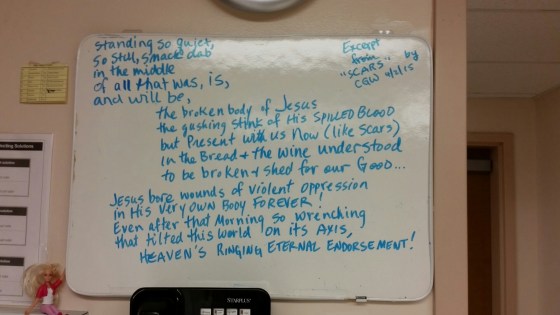 standing so quiet,
so still, smack dab
in the middle
of all that was, is,
and will be,
Excerpt
from
"SCARS" by
CGW 4/2/15
the broken body of Jesus
the gushing stink of His SPILLED BLOOD
but Present with us Now (like scars)
in the Bread + the wine understood
to be broken + shed for our GOOD...
Jesus bore wounds of violent oppression
in His very own Body FOREVER!
Even after that Morning so wrenching
that tilted this world on its AXIS,
HEAVEN'S RINGING ETERNAL ENDORSEMENT!
STARPLUS